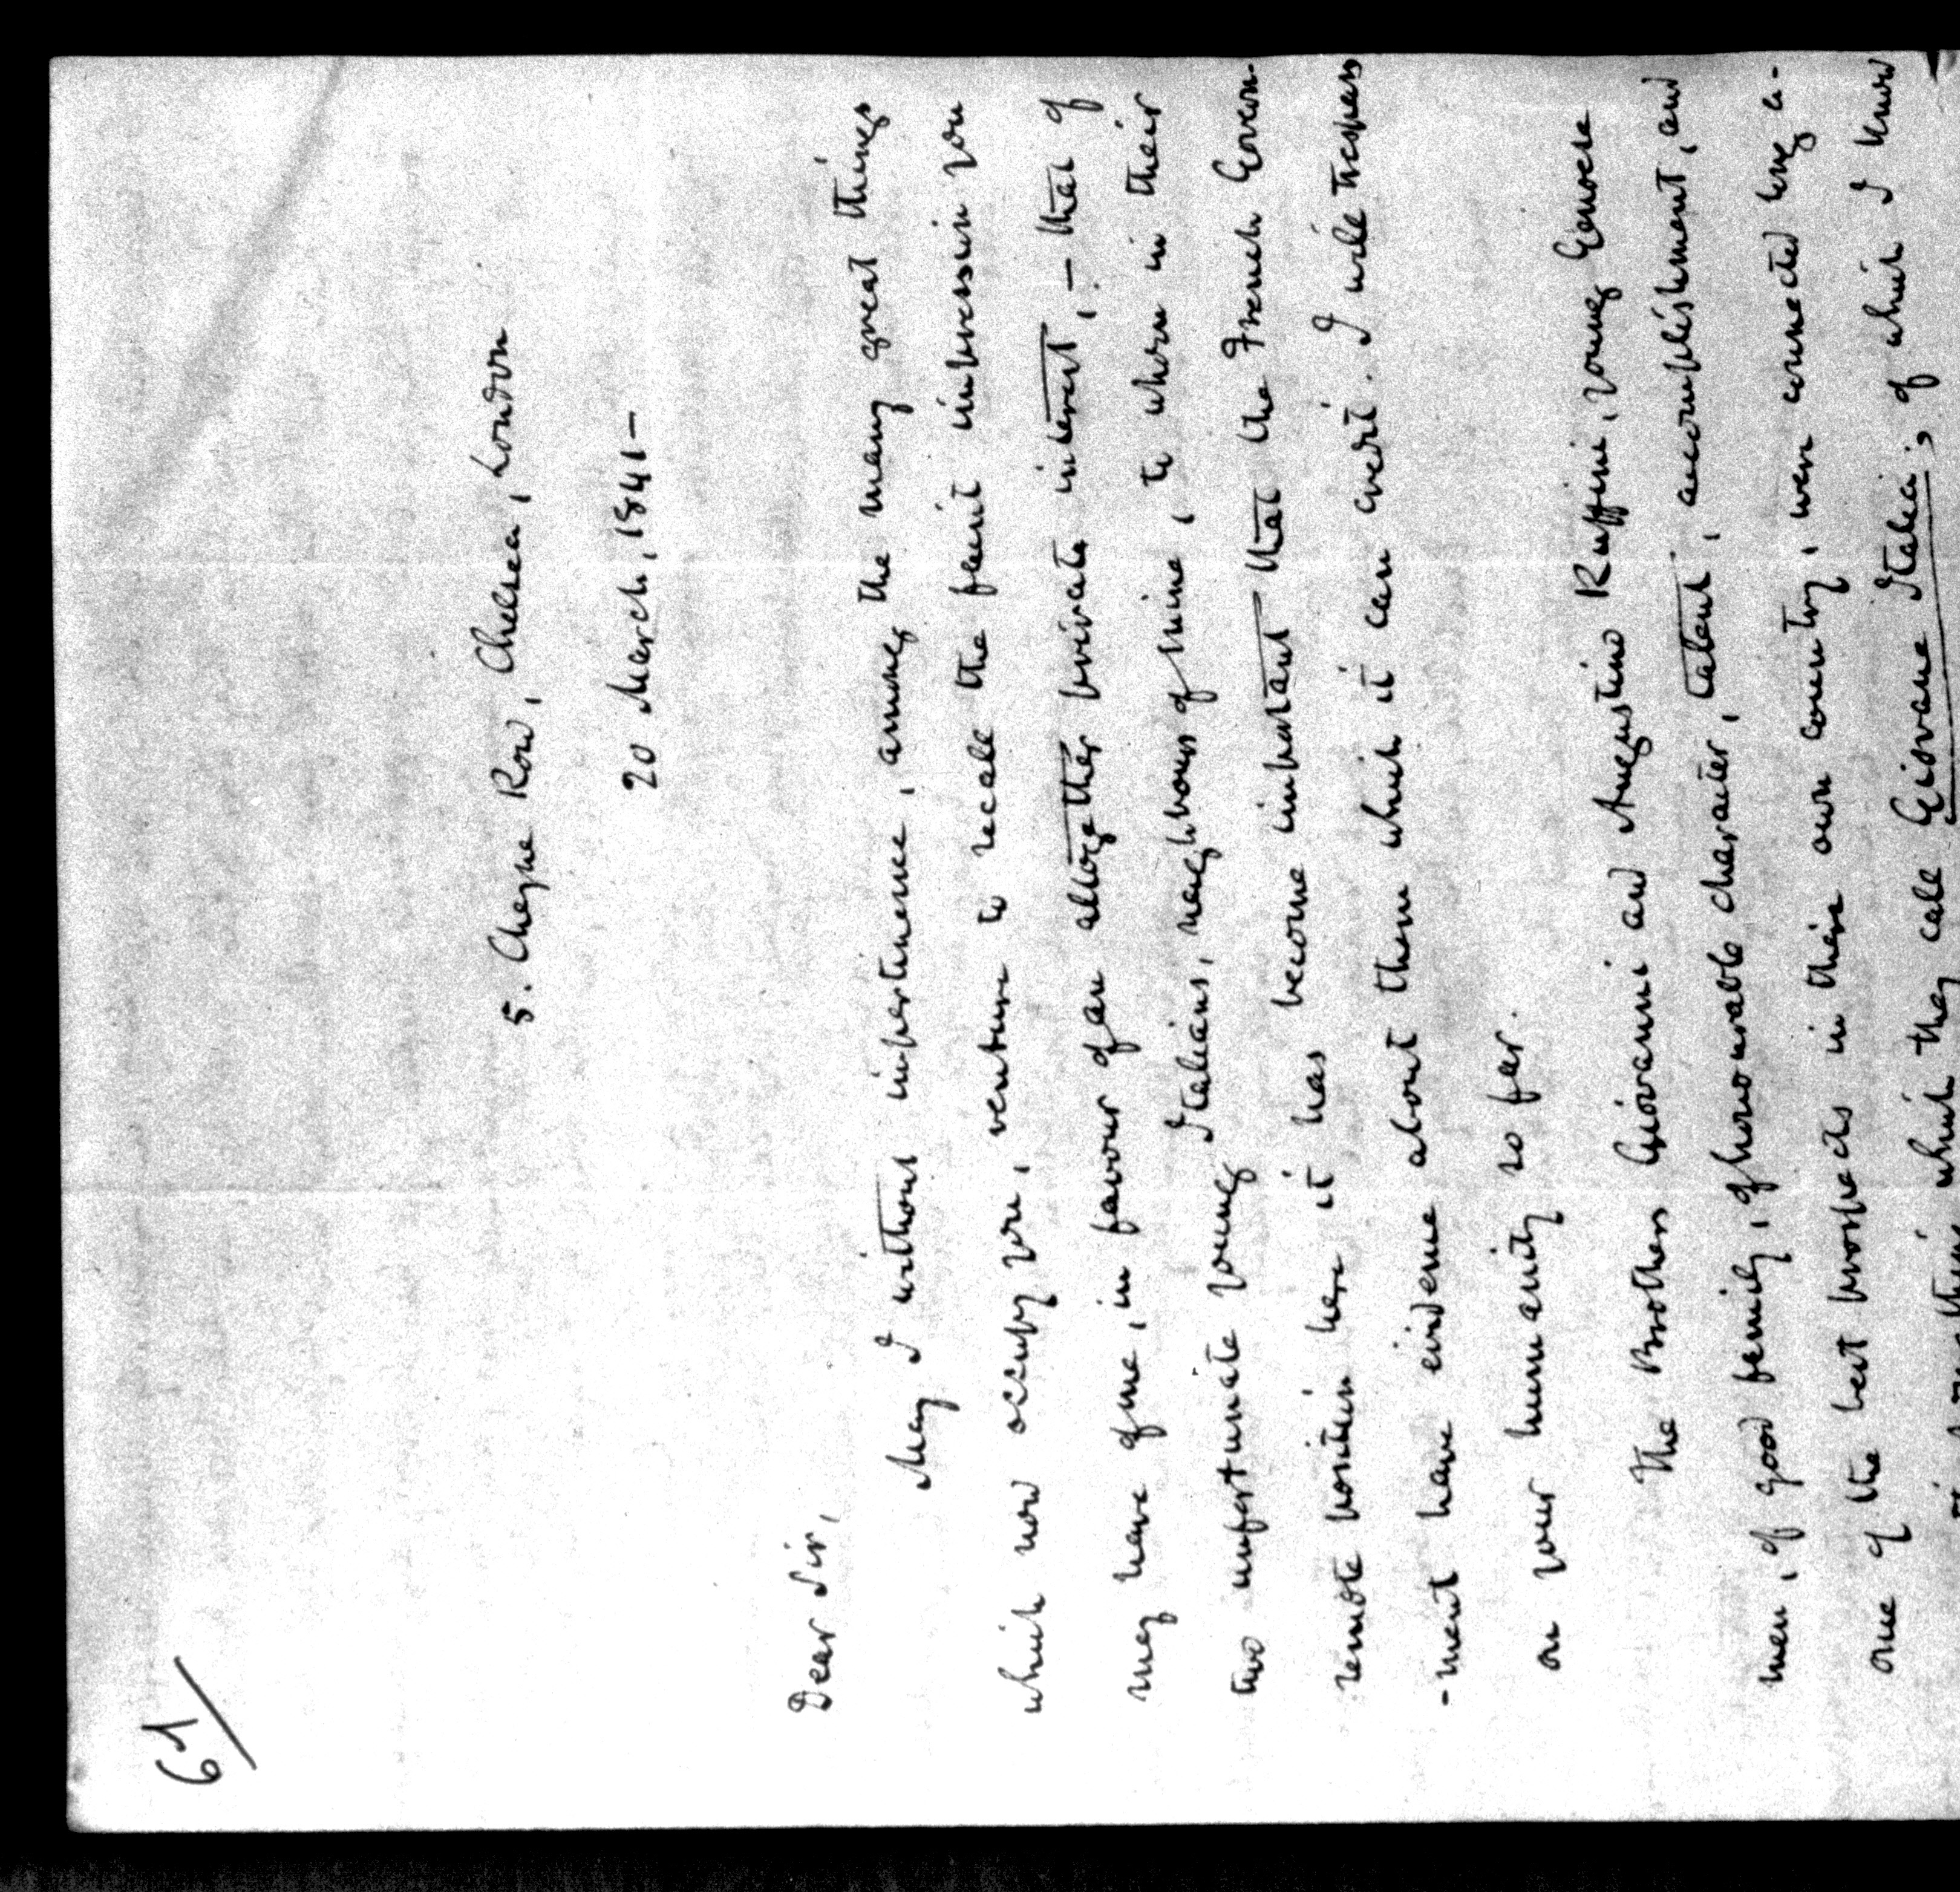 61
5. Cheyne Row, Chelsea, London
20 March, 1841 —
Dear Sir,
May I without impertinence, among the many great things
which now occupy you, venture to recall the faint impression you
may have of me, in favour of an altogether private interest, — that of
two unfortunate young Italians, neighbours of mine, to whom in their
remote position here it has become important that the French Govern-
-ment have evidence about them which it can credit. I will trespass
on your humanity so far.
The Brothers Giovanni and Augustino Ruffini, young Genoese
men, of good family, of honourable character, talent, accomplishment, and
of the best prospects in their own country, were connected long a-
one of the which they call Giovane Italia; of which I know